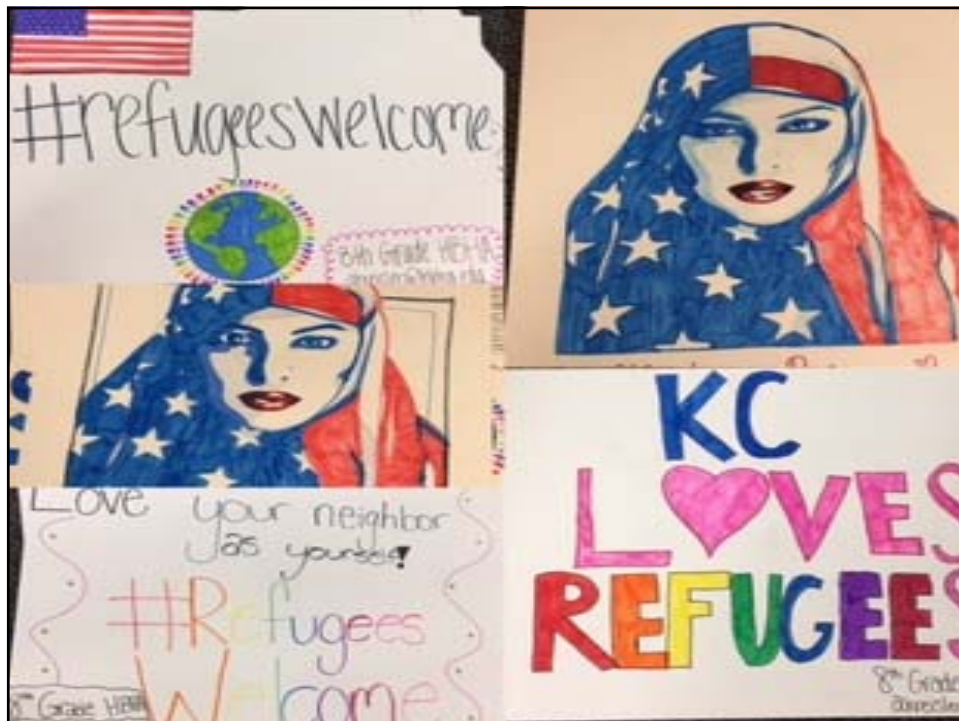 #refugeesWelcome
8th Grade
Love your neighbor
as
#Refugees
Welcome
8th Grade
KC
LOVES
REFUGEES
8th Grade